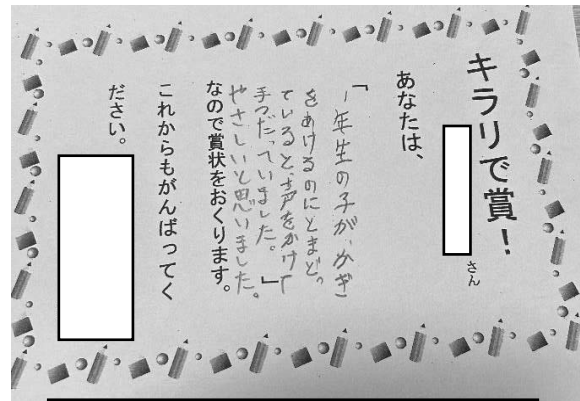 キラリで賞!
さん
あなたは、
「一年生の子が、かぎ
をあけるのにとまどっ
ていると、声をかけて
手つだっていました。」
やさしいと思いました。
なので賞状をおくります。
これからもがんばってく
ださい。